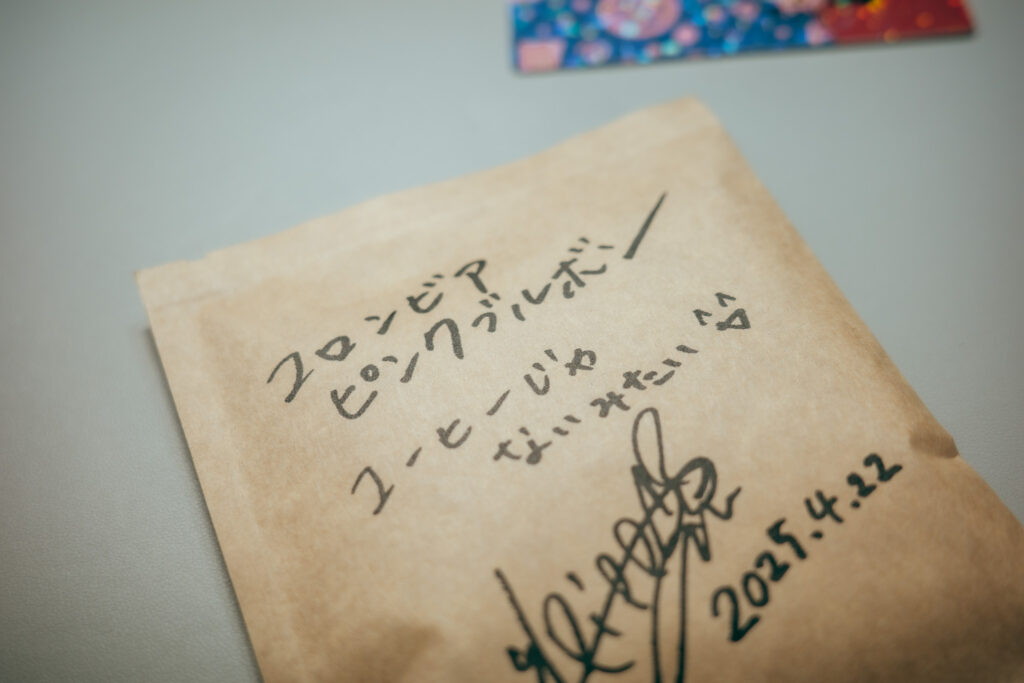 コロンビア
ピンクブルボン
コーヒーじゃ
ないみたい
2025.4.22